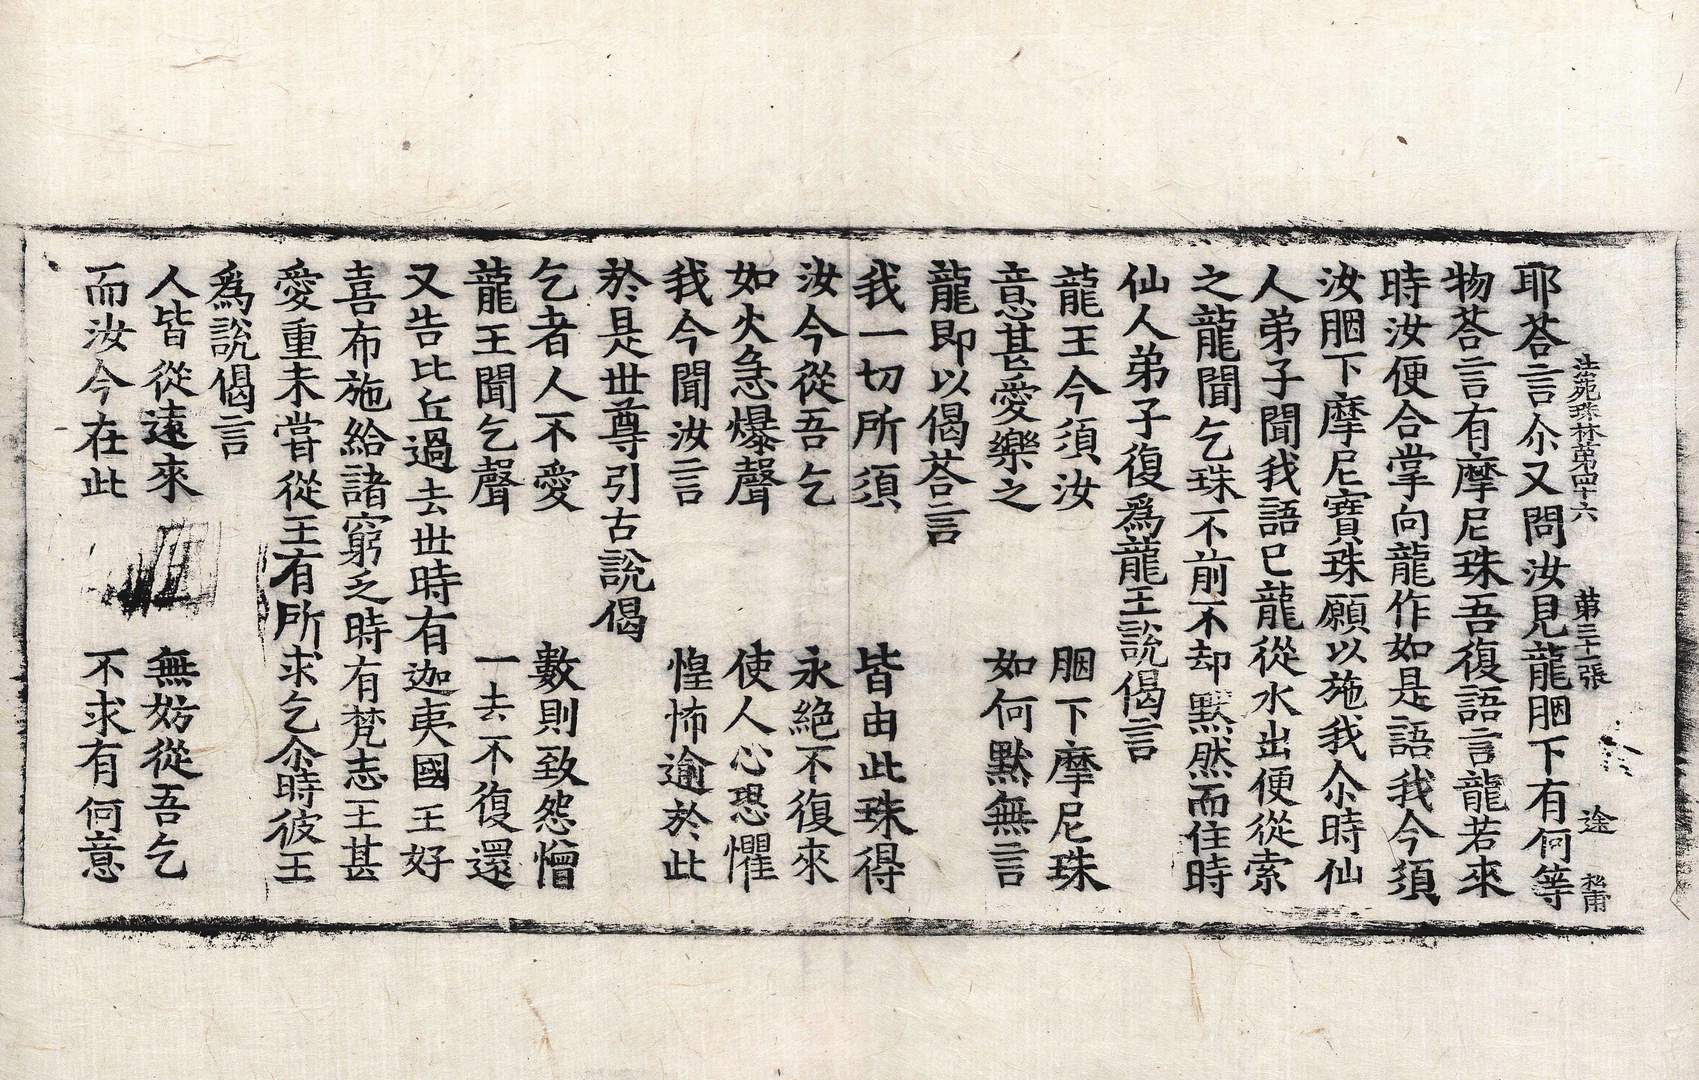 法苑珠林第四十六 第三十一張 途
耶荅言尒又問汝見龍胭下有何等
物荅言有摩尼珠吾復語言龍若來
時汝便合掌向龍作如是語我今須
汝胭下摩尼寶珠願以施我我尒時仙
人弟子聞我語已龍從水出便從索
之龍聞乞珠不前不却默然而住時
仙人弟子復爲龍王說偈言
龍王今須汝 胭下摩尼珠
意甚愛樂之 如何默無言
龍即以偈荅言
我一切所須 皆由此珠得
汝今從吾乞 永絕不復來
如火急爆聲 使人心恐懼
我今聞汝言 惶怖逾於此
於是世尊引古說偈
乞者人不愛 數則致怨憎
龍王聞乞聲 一去不復還
又告比丘過去世時有迦夷國王好
喜布施給諸窮乏時有梵志王甚
愛重未嘗從王有所求乞尒時彼王
爲說偈言
人皆從遠來 無妨從吾乞
而汝今在此 不求有何意